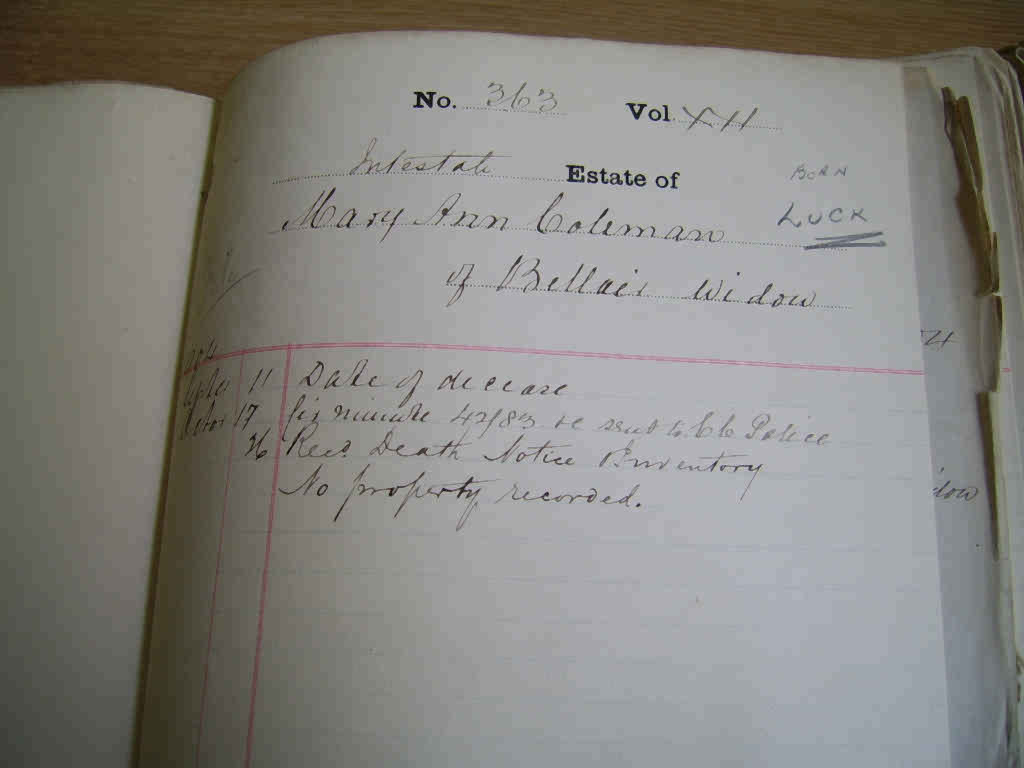 No. 363 Vol. XII
Intestate Estate of
BORN
LUCK
Mary Ann Coleman
of Bellair Widow
11 Date of decease
17 minute 42/83 re sent to CC Police
26 Recd. Death Notice & Inventory
No property recorded.